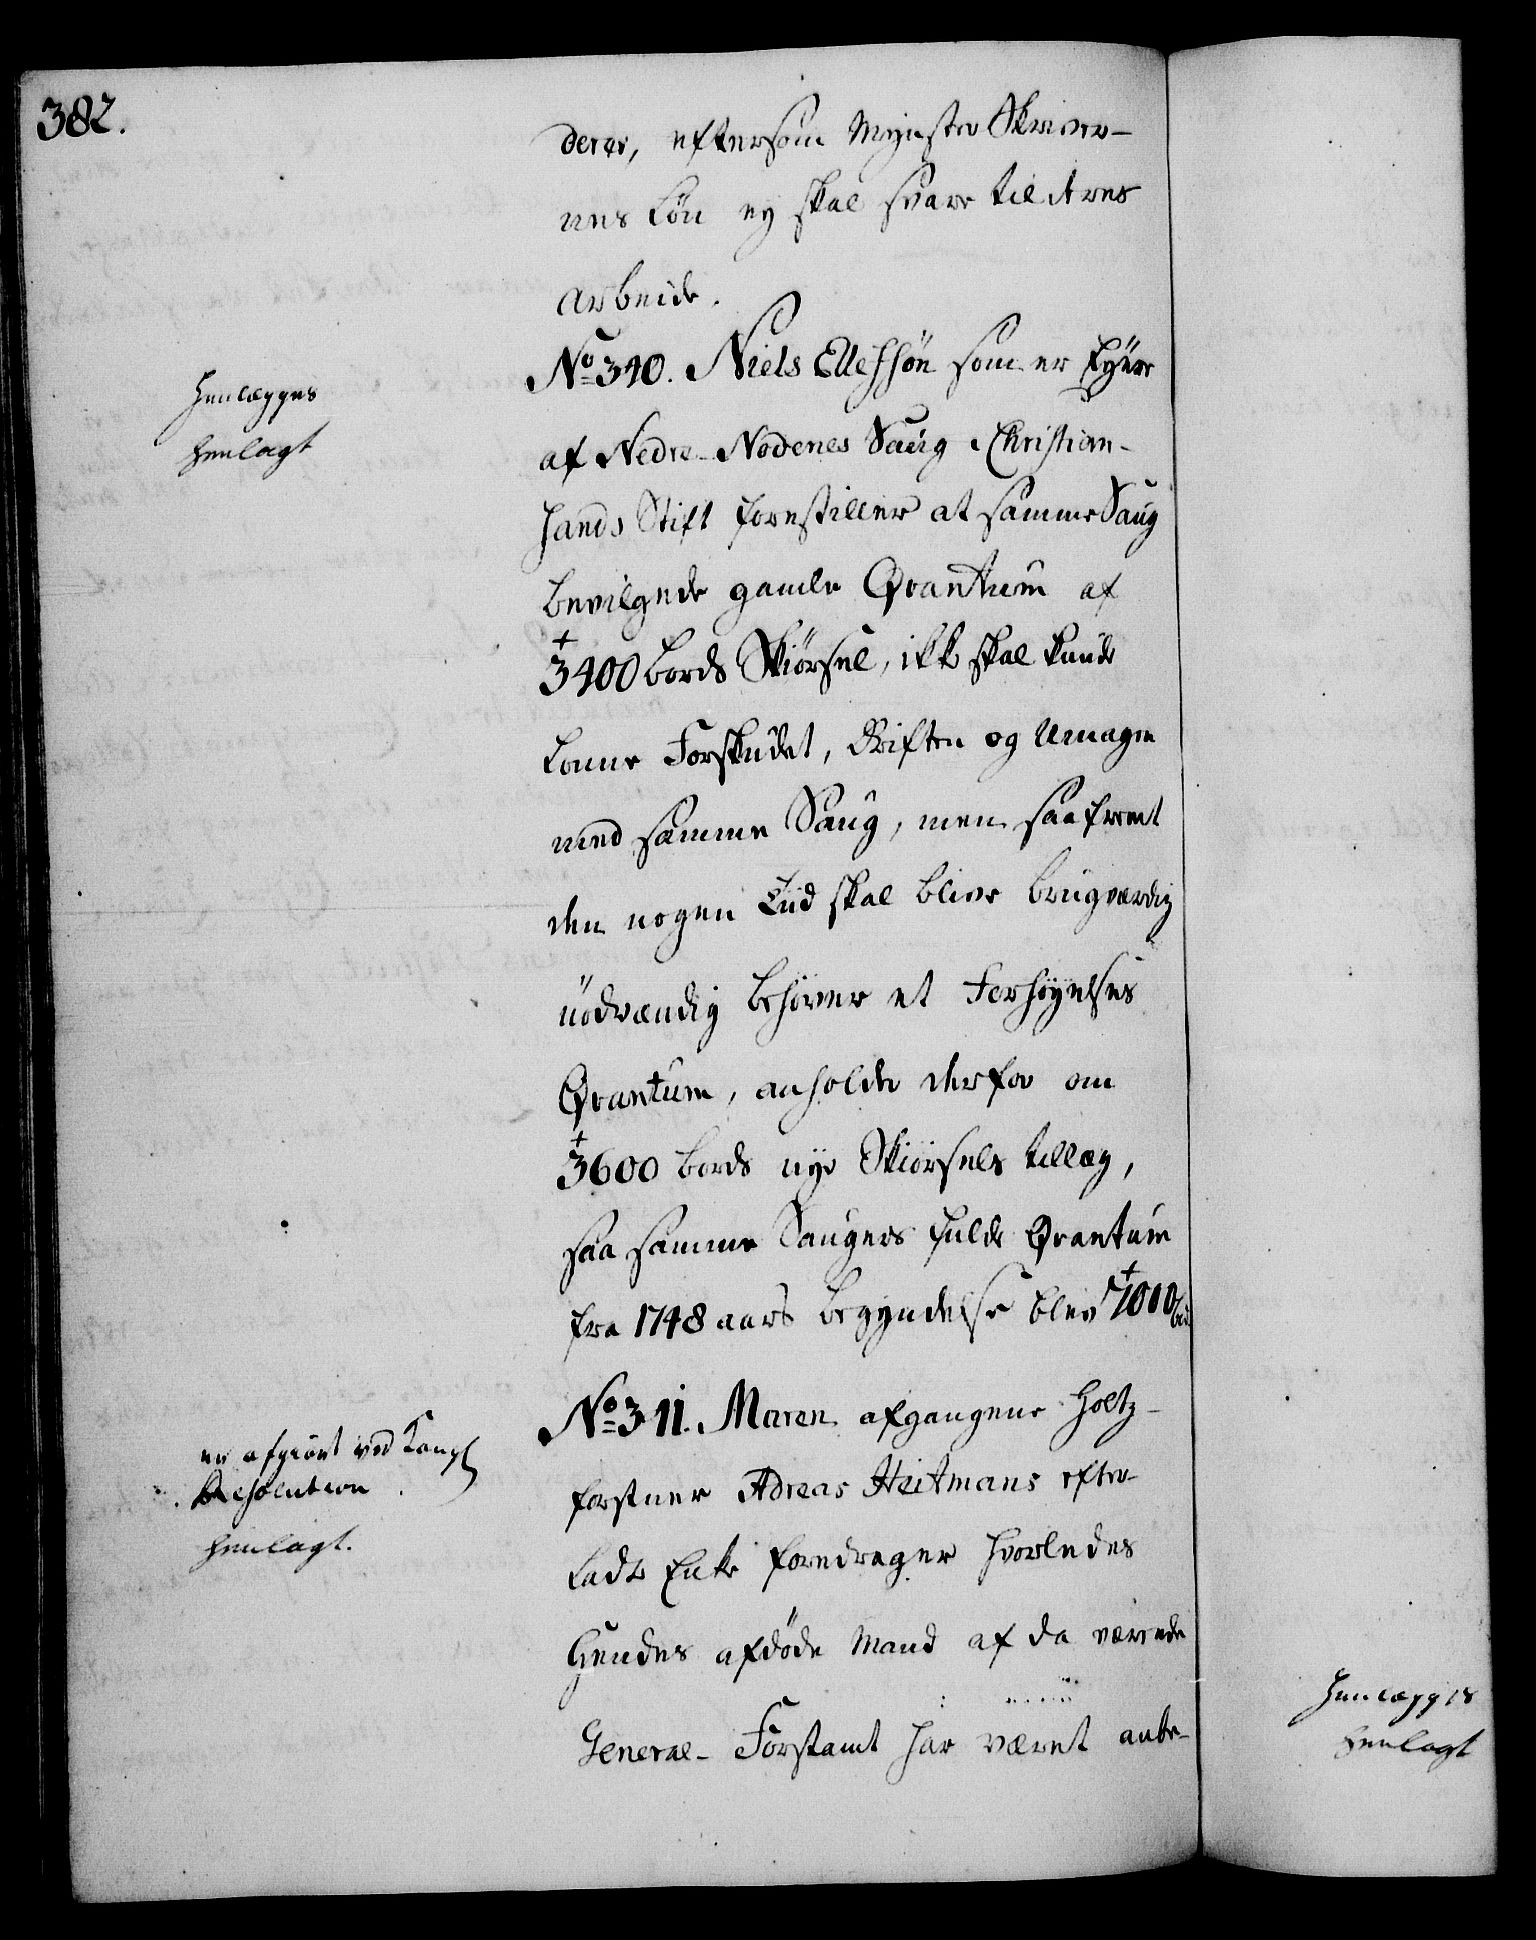 382.
derer, eftersom Mynster Skriver-
nes Løn ey skal svare til deres
arbeide.
Henlægges
henlagt
No 340. Niels Ellefssøn som er Eyere
af Nedre Nodenes Saug i Christian-
sands Stift forestiller at samme Saug
bevilgede gamle Qvantum af
3400 bords Skiørsel, ikke skal kunde
lønne Forskudet, Driften og Umagen
med samme Saug, men saafremt
den nogen Tiid skal blive brugværdig
nødvændig behøver et Forhøyelses
Qvantum, anholder derfor om
3600 bords nye Skiørsels tillæg,
saa samme Saugers fulde Qvantum
fra 1748 aars begyndelse blev 7000 bd
er afgiort ved Kongl
Resolution
henlagt.
No 341. Maren afgangene Holtz-
forstner Adreas Heitmans efter-
ladte Enke foredrager hvorledes
Hendes afdøde Mand af da værende
General-Forstamt har været anbe-
Henlægges
henlagt